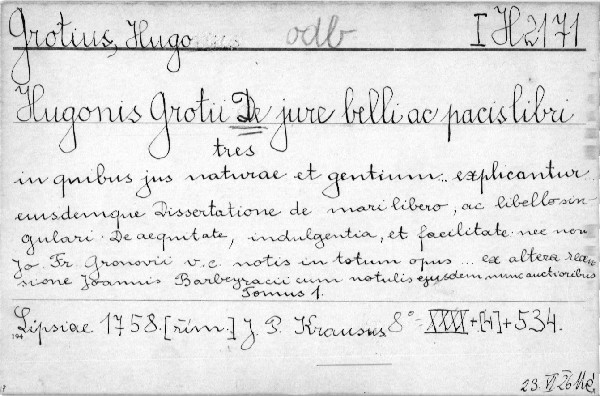 Grotius, Hugo odb I H 2171
Hugonis Grotii De jure belli ac pacis libri
tres
in quibus jus naturae et gentium.. explicantur
eiusdemque Dissertatione de mari libero, ac libello sin-
gulari De aequitate, indulgentia, et facilitate nec non
Jo. Fr. Gronovii v.c. notis in totum opus ... ex altera recen-
sione Joannis Barbeyracii cum notulis ejusdem nunc auctioribus
Tomus 1.
Lipsiae 1758.[řím.] J. P. Krausus 8° = XXXX+[4]+534.
23. VI 26